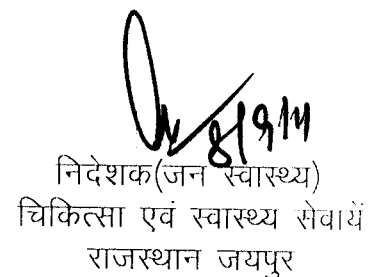 निदेशक(जन स्वास्थ्य)
चिकित्सा एवं स्वास्थ्य सेवायें
राजस्थान जयपुर